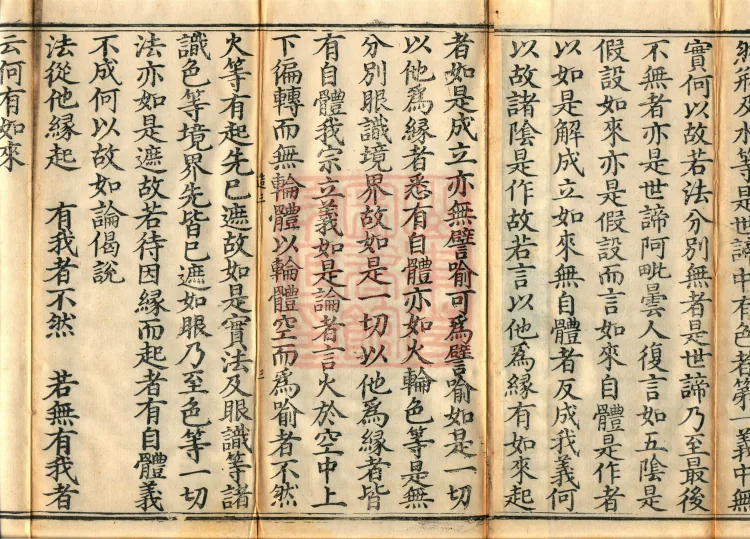 等是世諦中有色者第一義中無
實何以故若法分別無者是世諦乃至最後
不無者亦是世諦阿毗曇人復言如五陰是
假設如來亦是假設而言如來自體是作者
以如是解成立如來無自體者反成我義何
以故諸陰是作故若言以他爲縁有如來起
者如是成立亦無譬喻可爲譬喻如是一切
以他爲縁者悉有自體亦如火輪色等是無
分別眼識境界故如是一切以他爲縁者皆
有自體我宗立義如是論者言火於空中上
下徧轉而無輪體以輪體空而爲喻者不然
火等有起先巳遮故如是實法及眼識等諸
識色等境界先皆巳遮如眼乃至色等一切
法亦如是遮故若待因縁而起者有自體義
不成何以故如論偈說
法從他縁起　有我者不然　若無有我者
云何有如來